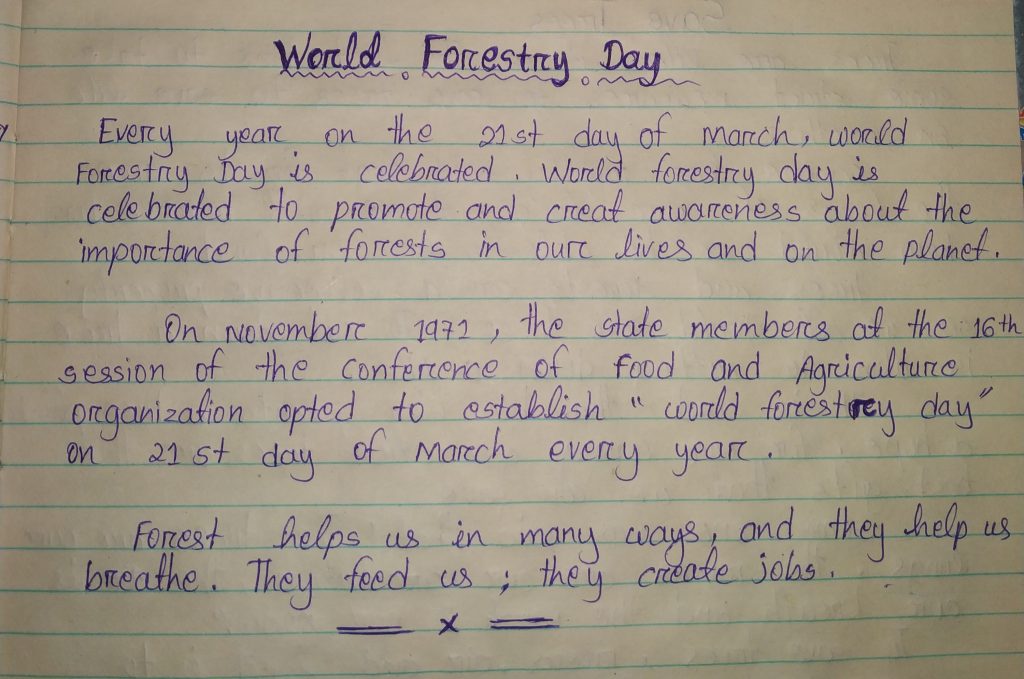 World Forestry Day
Every year on the 21st day of march, world
Forestry Day is celebrated. World forestry day is
celebrated to promote and creat awareness about the
importance of forests in our lives and on the planet.
On November 1971, the state members at the 16th
session of the conference of food and Agriculture
organization opted to establish "woorld forestry day"
on 21st day of March every year.
Forest helps us in many ways, and they help us
breathe. They feed us; they create jobs.
x